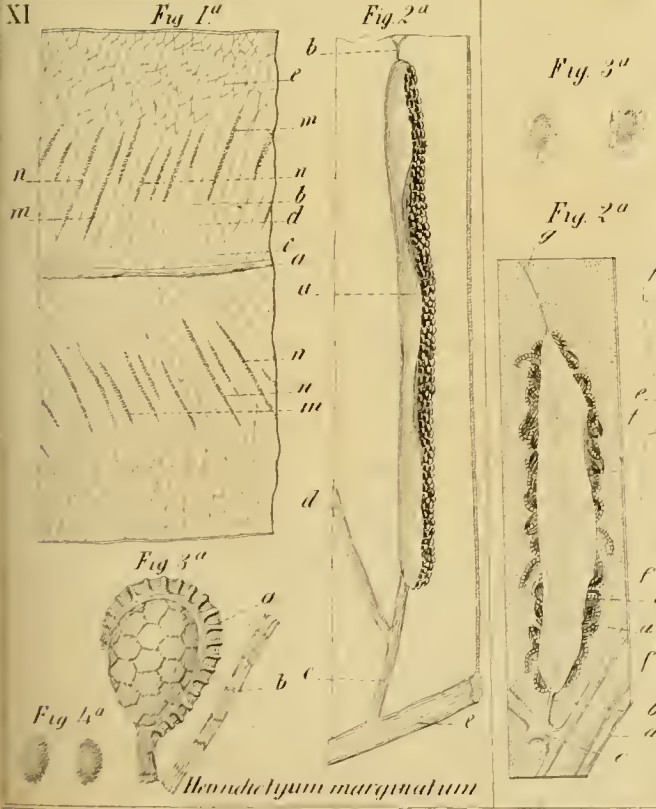 XI
Fig 1.ª
e
m
n
n
b
m
d
c
a
n
n
m
Fig. 2ª
b
a
d
c
e
Fig 3ª
a
b
Fig 4ª
Hemidictyum marginatum
Fig. 3ª
Fig. 2ª
g
e
f
f
a
f
b
d
c